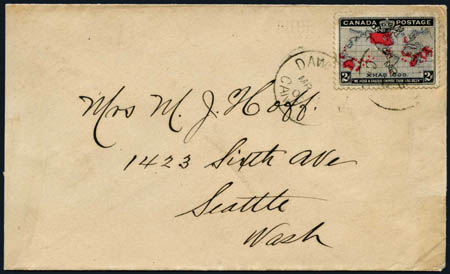 CANADA POSTAGE
2c
XMAS 1898
2c
"WE HOLD A VASTER EMPIRE THAN HAS BEEN"
DAW
CAN
Mrs M. J. Hoff.
1423 Sixth Ave
Seattle
Wash